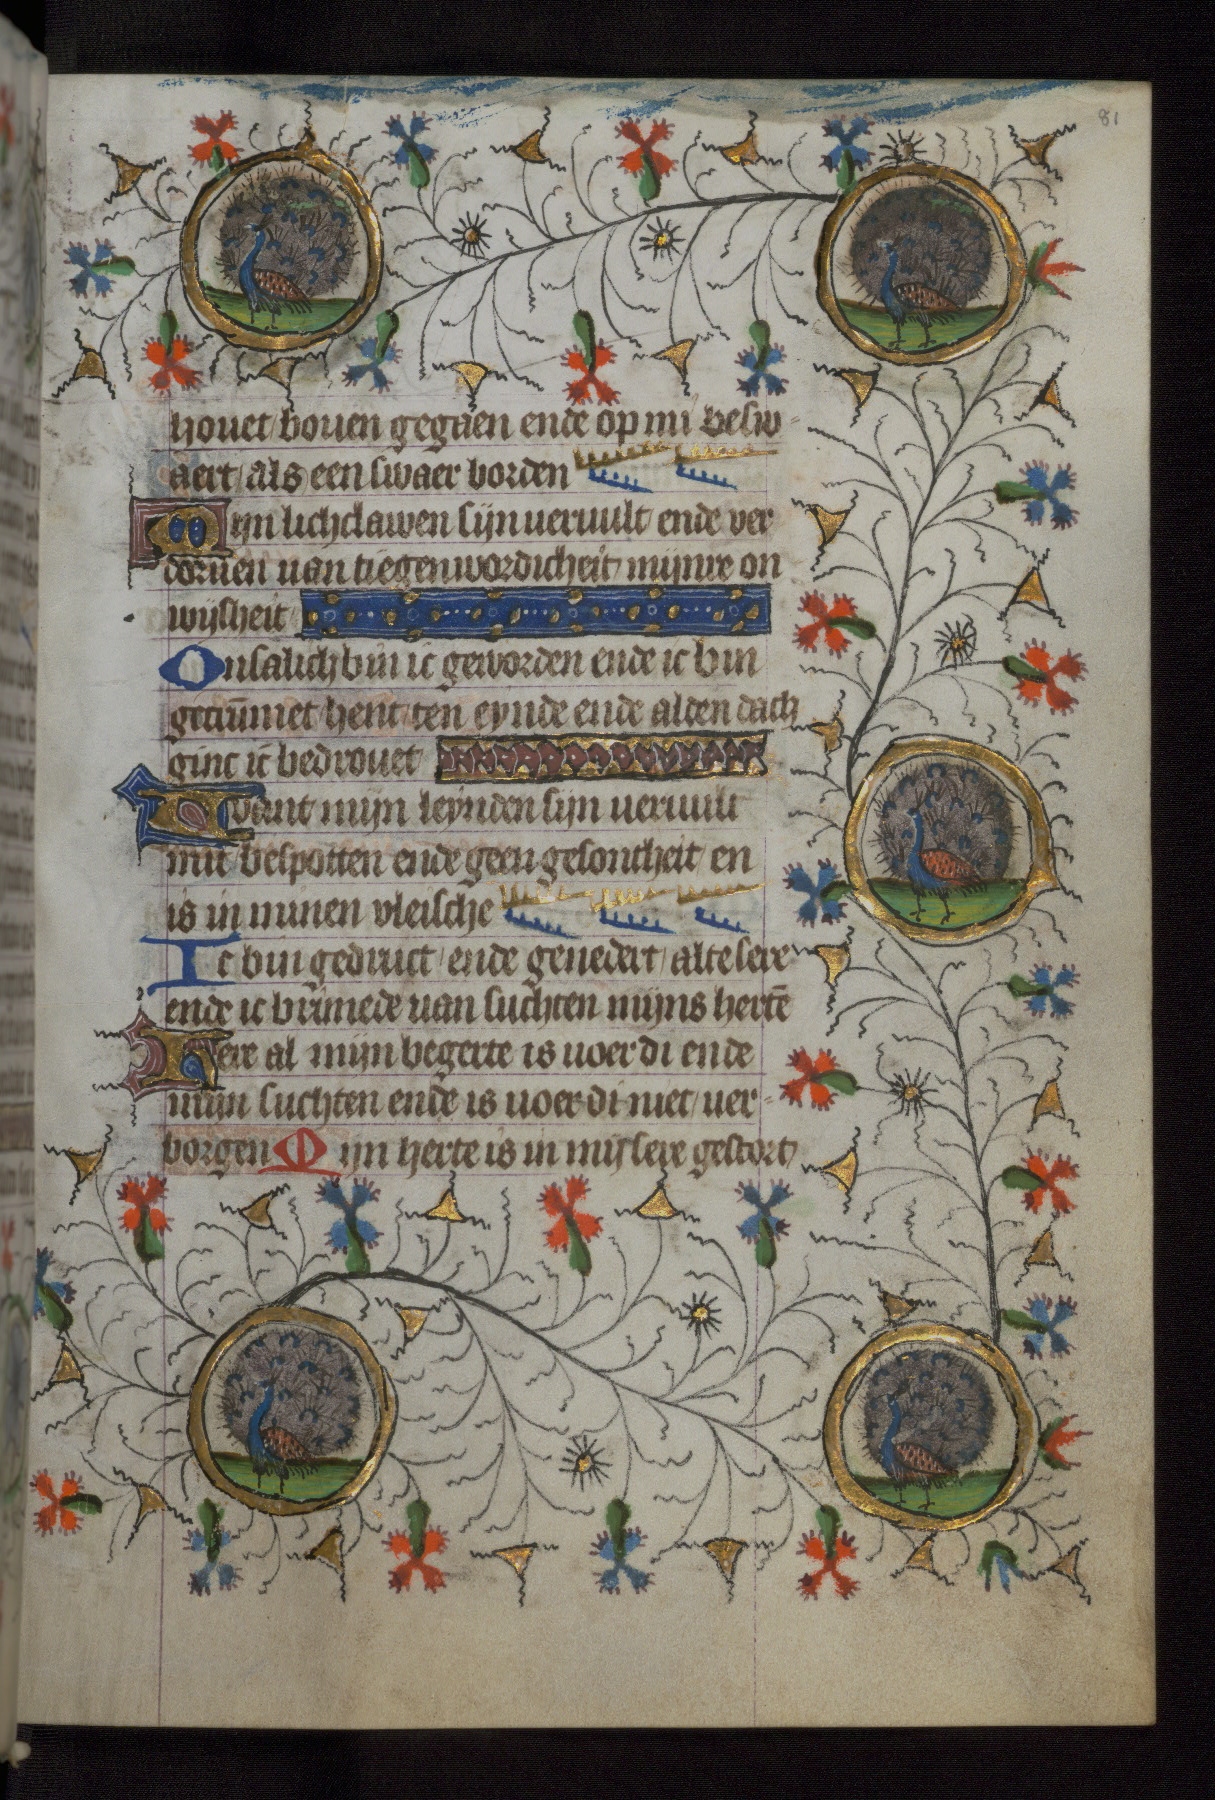 81
houet bouen gegaen ende op mi besw
aert als een swaer borden
Mijn lichclawen sijn ueruult ende ver
doruen uan tiegenwordicheit mijnre on
wijsheit
Onsalich bin ic geworden ende ic bin
gecrūmet hent ten eynde ende alden dach
ginc ic bedrouet
Want mijn leynden sijn ueruult
mit bespotten ende geen gesontheit en
is in minen vleische
Ic bin gedruct ende genedert alte sere
ende ic brimede uan suchten mijns hertē
Here al mijn begerte is uoer di ende
mijn suchten ende is uoer di niet uer
borgen Mijn herte is in mi sere gestort